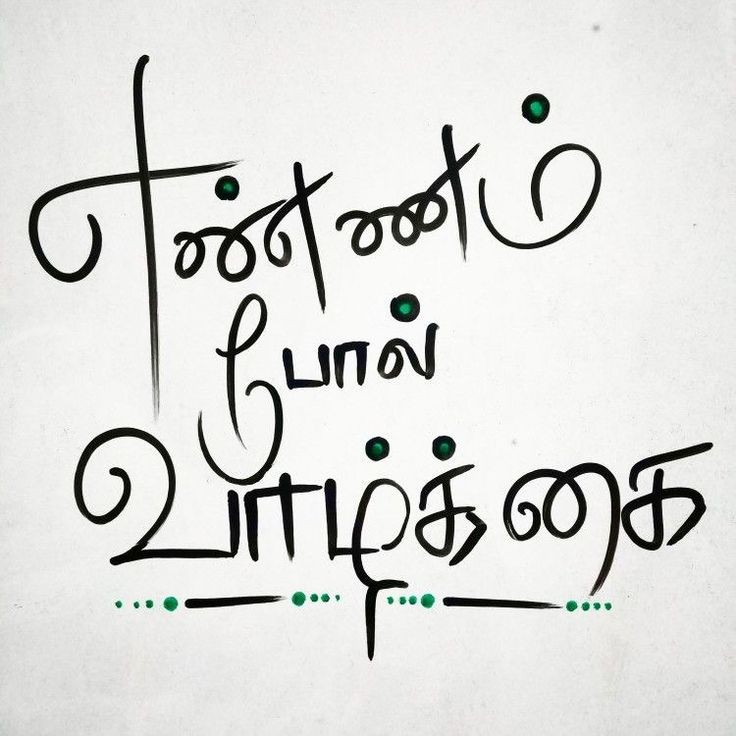 எண்ணம்
போல்
வாழ்க்கை